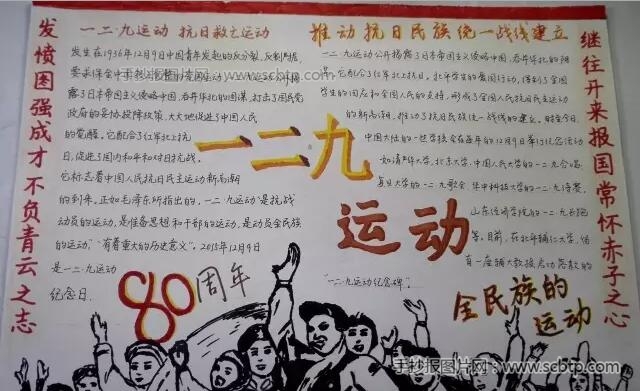 发愤图强成才不负青云之志
一二·九运动 抗日救亡运动
发生在1936年12月9日中国青年发起的反分裂、反割据,
露了日本帝国主义侵略中国、吞并华北的图谋,打击了国民党
政府的妥协投降政策,大大地促进了中国人民
的觉醒。它配合了红军北上抗
日,促进了国内和平和对日抗战。
它标志着中国人民抗日民主运动新高潮
的到来。正如毛泽东所指出的,一二·九运动"是抗战
动员的运动,是准备思想和干部的运动,是动员全民族
的运动,""有着重大的历史意义"。2015年12月9日
是一二·九运动
纪念日.
80周年
一二九
运动
推动抗日民族统一战线建立
一二·九运动公开揭露了日本帝国主义侵略中国、吞并华北的阴
谋,它配合了红军北上抗日。北平学生的爱国行动,得到了全国
学生的响应和全国人民的支持,形成了全国人民抗日民主运动
的新高潮,推动了抗日民族统一战线的建立。时至今日,
中国大陆的一些学校会在每年的12月9日举行纪念活动
如清华大学、北京大学、中国人民大学的一二·九合唱
复旦大学的一二·九歌会、华中科技大学的一二·九诗赛、
山东经济学院的一二·九长跑
等。目前,在北平辅仁大学,估
有一座辅大教授启功落款的
"一二·九运动纪念碑"。
全民族的
运动
继往开来报国常怀赤子之心
手抄报图片网:www.scbtp.com